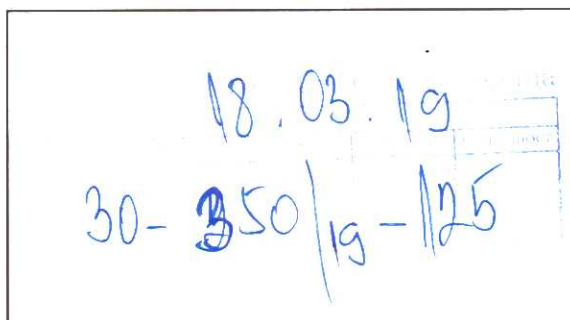 18.03.19
30-350/19-125